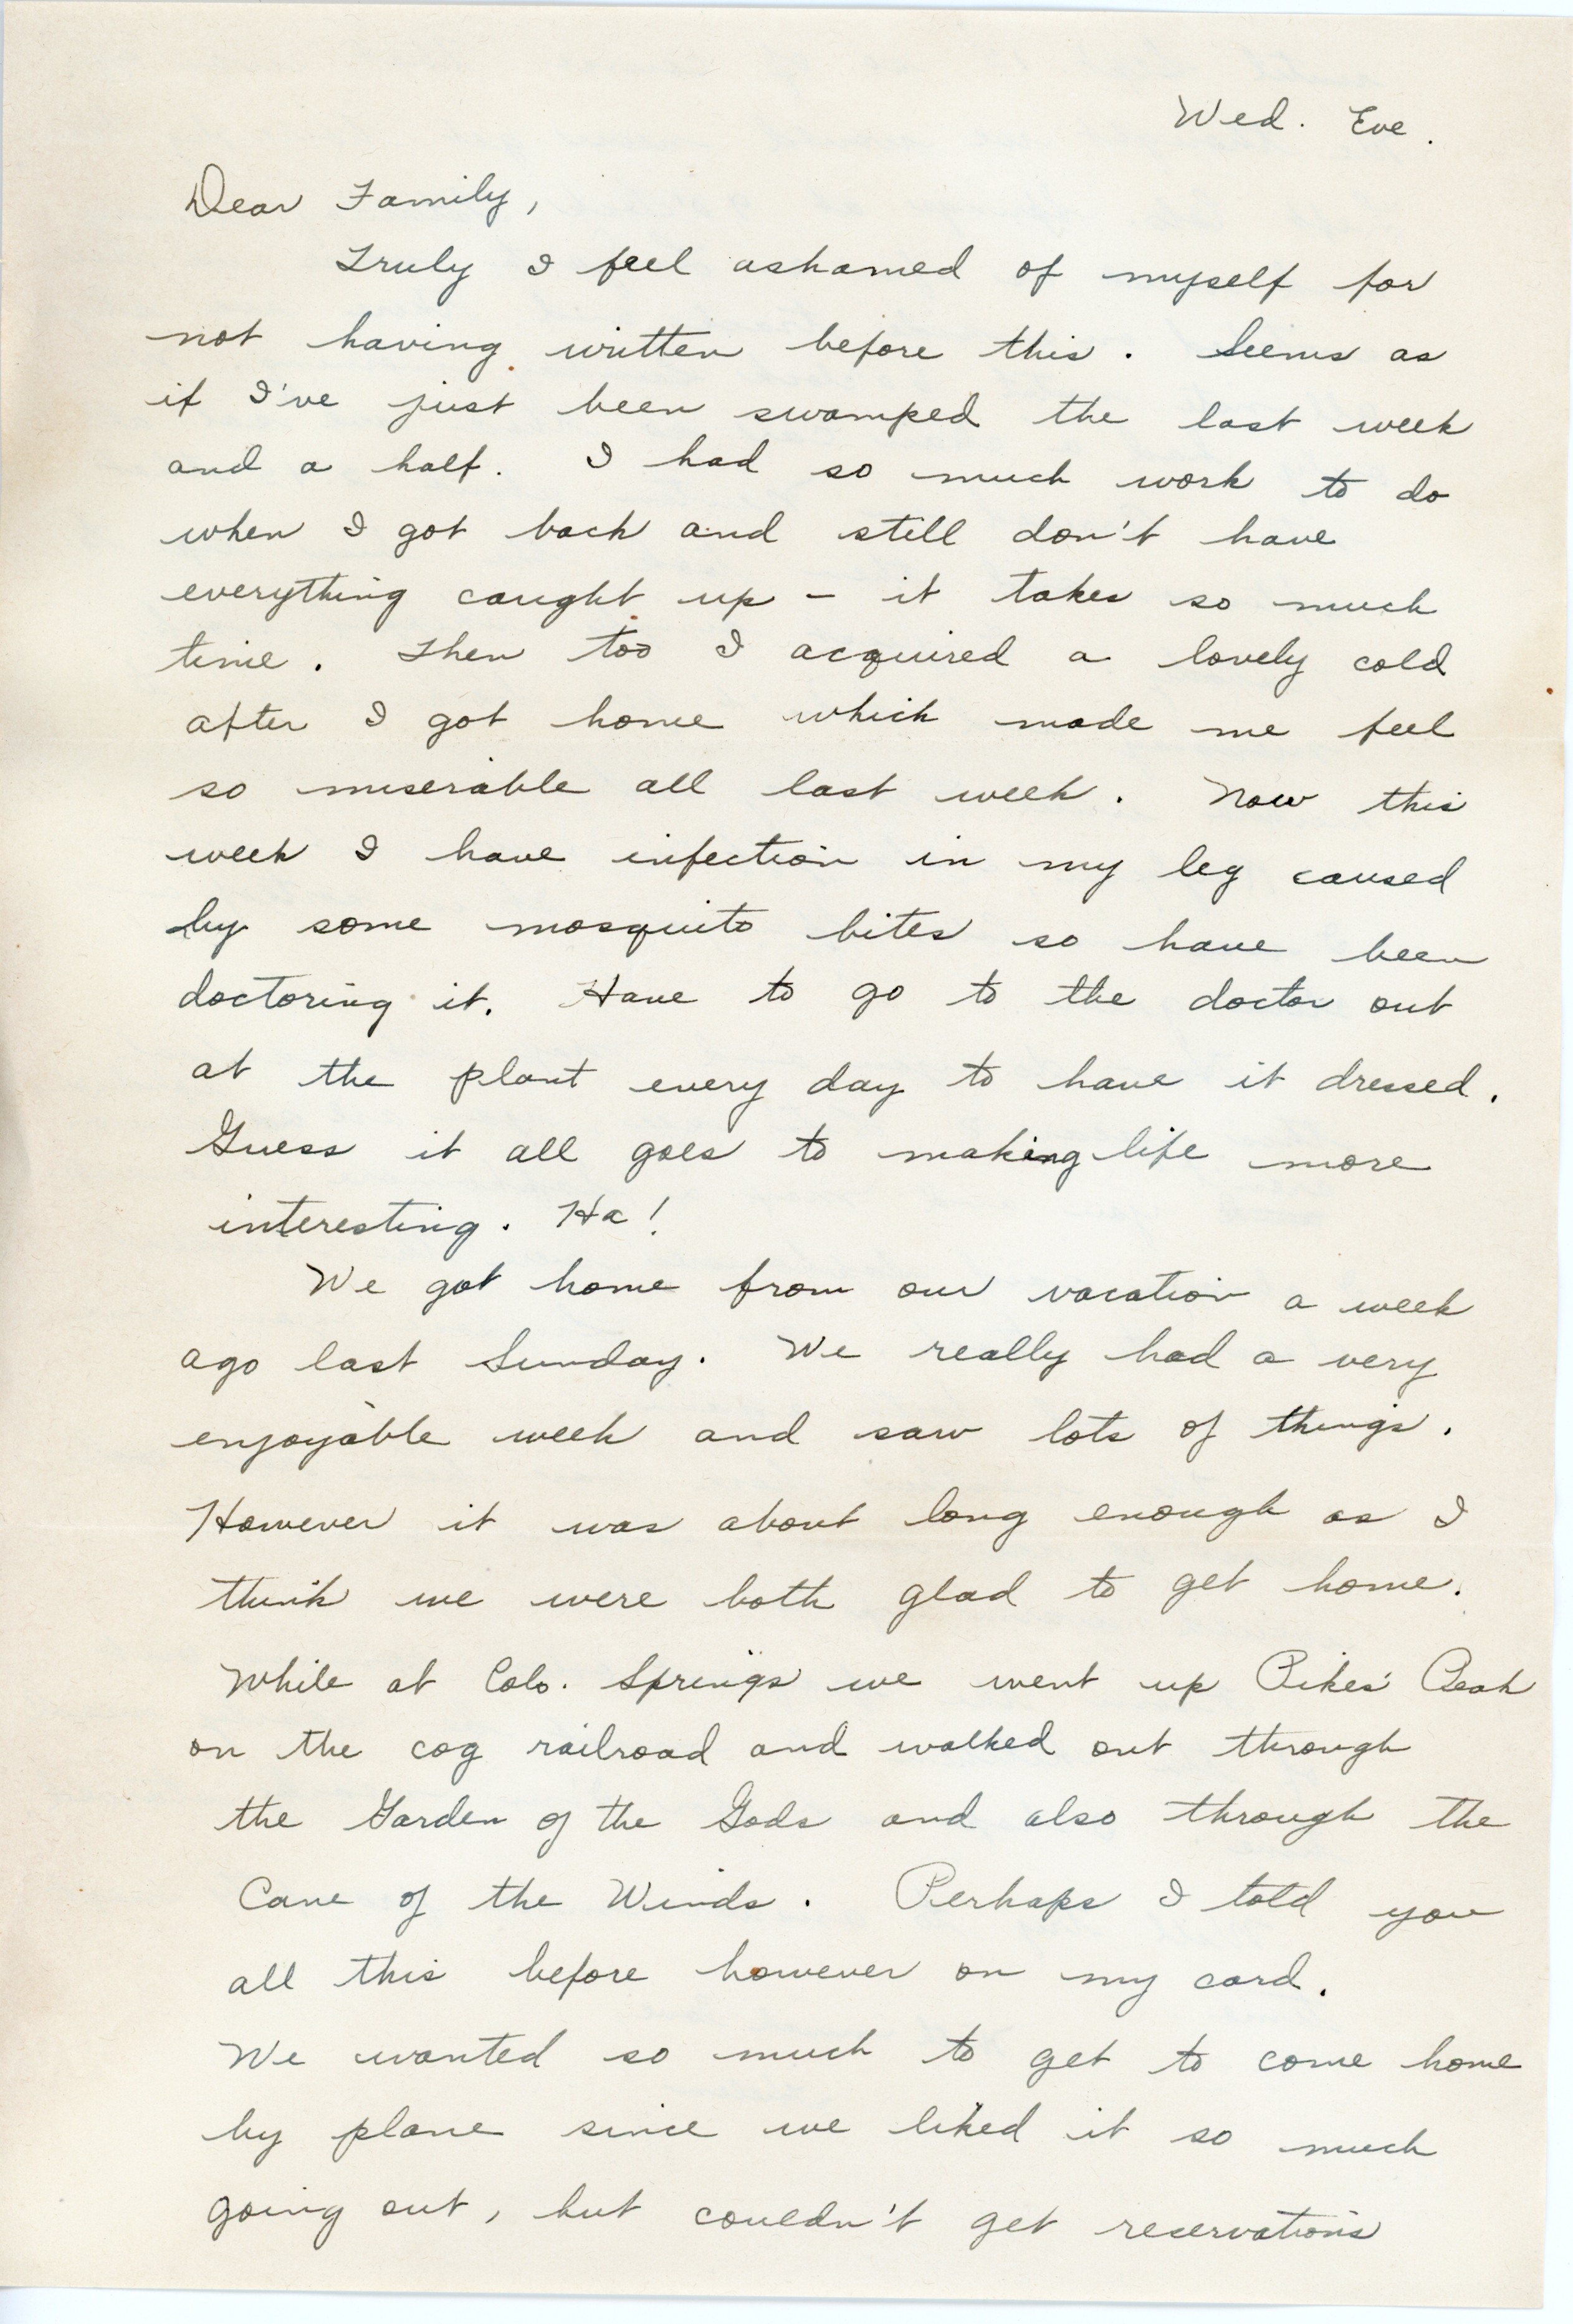 Wed. Eve.
Dear Family,
Truly I feel ashamed of myself for
not having written before this. Seems as
if I've just been swamped the last week
and a half. I had so much work to do
when I got back and still don't have
everything caught up - it takes so much
time. Then too I acquired a lovely cold
after I got home which made me feel
so miserable all last week. Now this
week I have infection in my leg caused
by some mosquito bites so have been
doctoring it. Have to go to the doctor out
at the plant every day to have it dressed.
Guess it all goes to making life more
interesting. Ha!
We got home from our vacation a week
ago last Sunday. We really had a very
enjoyable week and saw lots of things.
However it was about long enough as I
think we were both glad to get home.
While at Colo. Springs we went up Pikes' Peak
on the cog railroad and walked out through
the Garden of the Gods and also through the
Cave of the Winds. Perhaps I told you
all this before however on my card.
We wanted so much to get to come home
by plane since we liked it so much
going out, but couldn't get reservations